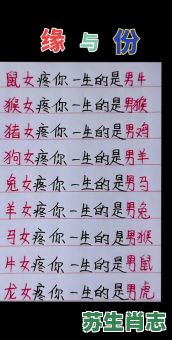 缘与份
鼠女疼你一生的是男牛
猴女疼你一生的是男猴
猪女疼你一生的是男鸡
狗女疼你一生的是男羊
兔女疼你一生的是男马
羊女疼你一生的是男兔
马女疼你一生的是男猴
牛女疼你一生的是男鼠
龙女疼你一生的是男虎
苏生肖志